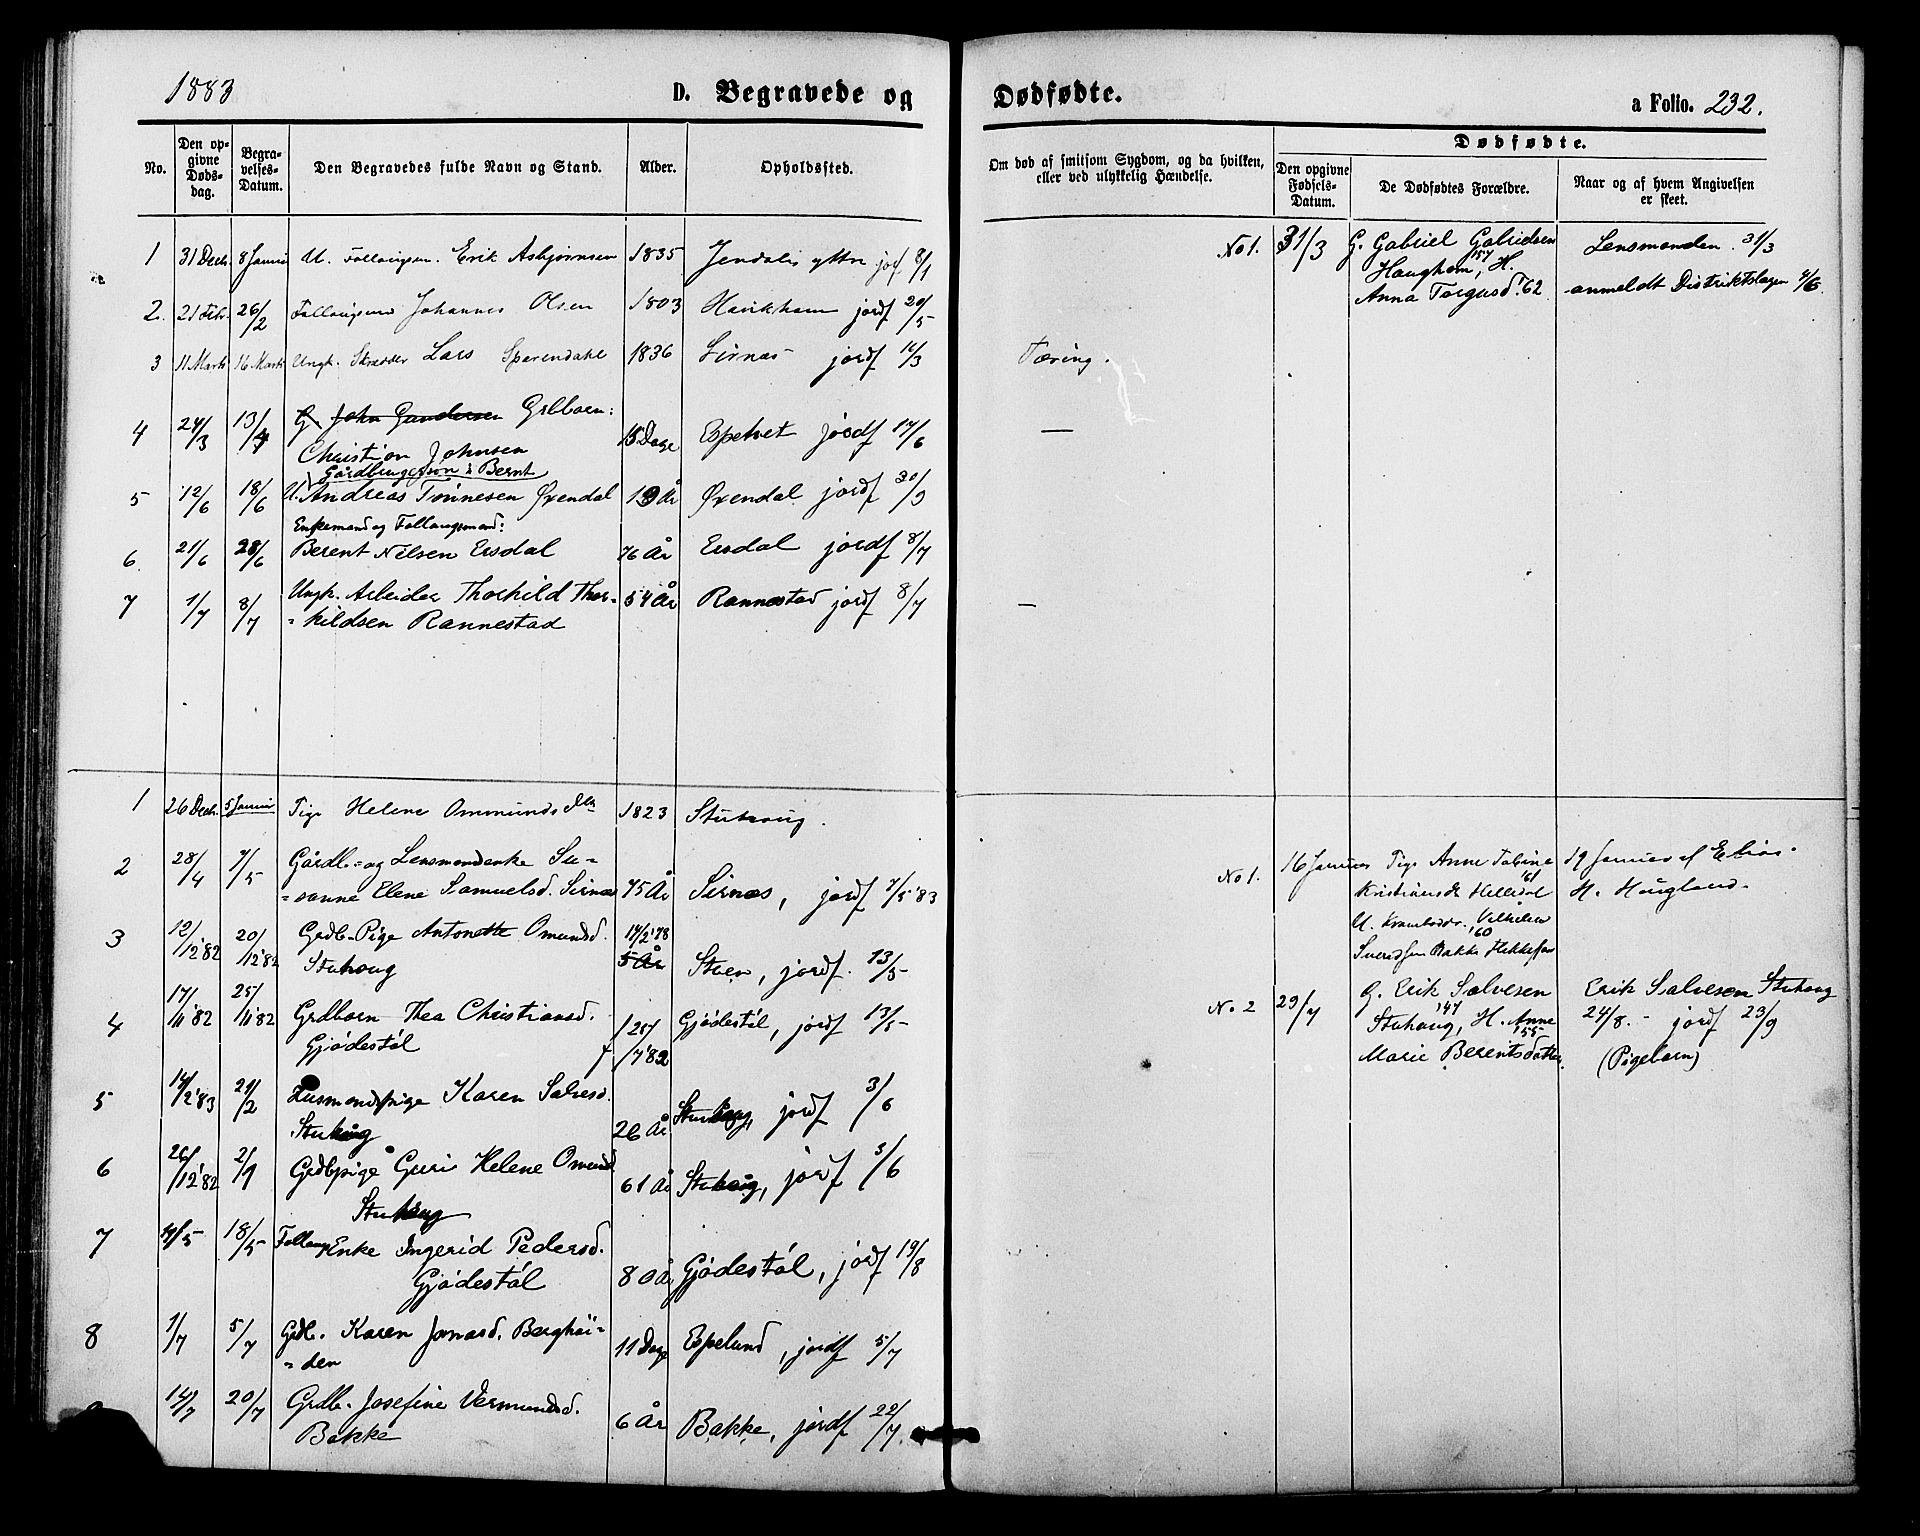 1883
D. Begravede og
No.
Den opgivne Dødsdag.
Begravelses-Datum.
Den Begravedes fulde Navn og Stand.
Alder.
Opholdssted.
1 31 Decb. 8 Januar U. Follaugsm. Erik Asbjørnsen 1835 Jendalis yttre jof 8/1
2. 21 Febr. 26/2 Follaugsmd Johannes Olsen 1803 Haukham jordf 20/5
3 11 Marts 16 Marts Ungk. Skrædder Lars Sparendahl 1836 Sirnæs jordf 16/3
G. John Gundersen Grdbarn:
4 24/3 13/4 Christian Johnsen 15 Dage Espetvet jordf 17/6
Gårdbrugersøn: Bernt
5 12/6 18/6 U. Andreas Tønnesen Øxendal 19 År Øxendal jordf 30/9
Enkemand og Follaugsmand:
6 21/6 28/6 Berent Nilsen Ersdal 76 År Ersdal jordf 8/7
7 1/7 8/7 Ungk. Arbeider Thorkild Thor= 54 År Rannestad jordf 8/7
=kildsen Rannestad
1 26 Decb. 5 Januar Pige Helene Ommundsdtr 1823 Stuhaug.
2 28/4 7/5 Gårdb.= og Lensmandenke Su=
=sanne Elene Samuelsd. Sirnæs 75 År Sirnæs, jordf 7/5 83
3 12/12 '82 20/12 '82 Grdb. Pige Antonette Omundsd. 14/2 '78
Stuhaug 5 År Steen, jordf. 13/5
4 17/11 '82 25/11 '82 Grdbarn Thea Christiansd.
Gjødestøl f 25/7 '82 Gjødestøl, jordf 13/5
5 14/2 '83 21/2 Husmandspige Karen Salvesd.
Stuhaug 26 År Stuhaug, jordf 3/6
6 26/12 '82 2/9 Grdbpige Guri Helene Omund
Stuhaug 61 År Stuhaug, jordf 3/6
7 11/5 18/5 Follaugs Enke Ingerid Pedersd.
Gjødestøl 80 År Gjødestøl, jordf 19/8
8 1/7 5/7 Grdb. Karen Jonasd. Berghei=
=den 11 Dage Espelund, jordf 5/7
14/7 20/7 Grdb. Josefine Vermundsd.
Bakke 6 År Bakke, jordf 22/7.
Dødfødte.
a Folio. 232.
Om død af smitsom Sygdom, og da hvilken,
eller ved ulykkelig Hændelse.
Dødfødte.
Den opgivne Fødsels-Datum.
De Dødfødtes Forældre.
Naar og af hvem Angivelsen er skeet.
No 1. 31/3 G. Gabriel Gabrielsen Lensmanden. 31/3
Haughom, '57 H.
Anna Torgusd. '62 anmeldt Distriktslægen 4/6
Tæring.
—
—
No 1. 16 Januar Pige Anne Tobine 19 Januar af Elias
Kristiansdt Helledal '61 H. Haugland.
U. Vilhelm '60
Bakke
No 2 29/7 G. Erik Salvesen Erik Salvesen Stuhaug
Stuhaug, '47 H. Anne 24/8. - jordf 23/9
Marie Berentsdatter '55 (Pigebarn)